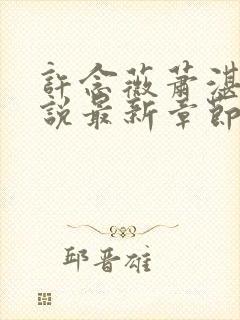 許念薇蕭湛
說最新章節
邱晋雄